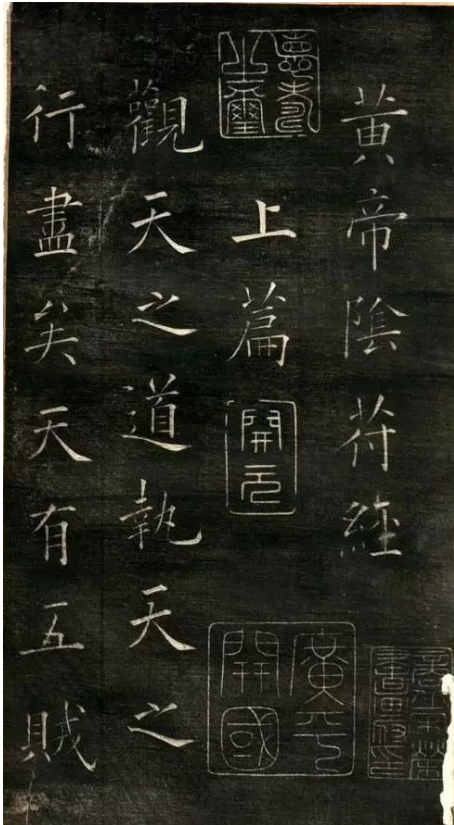 黄帝陰符經
上篇
開元
廣平開國
觀天之道執天之
行盡矣天有五賊